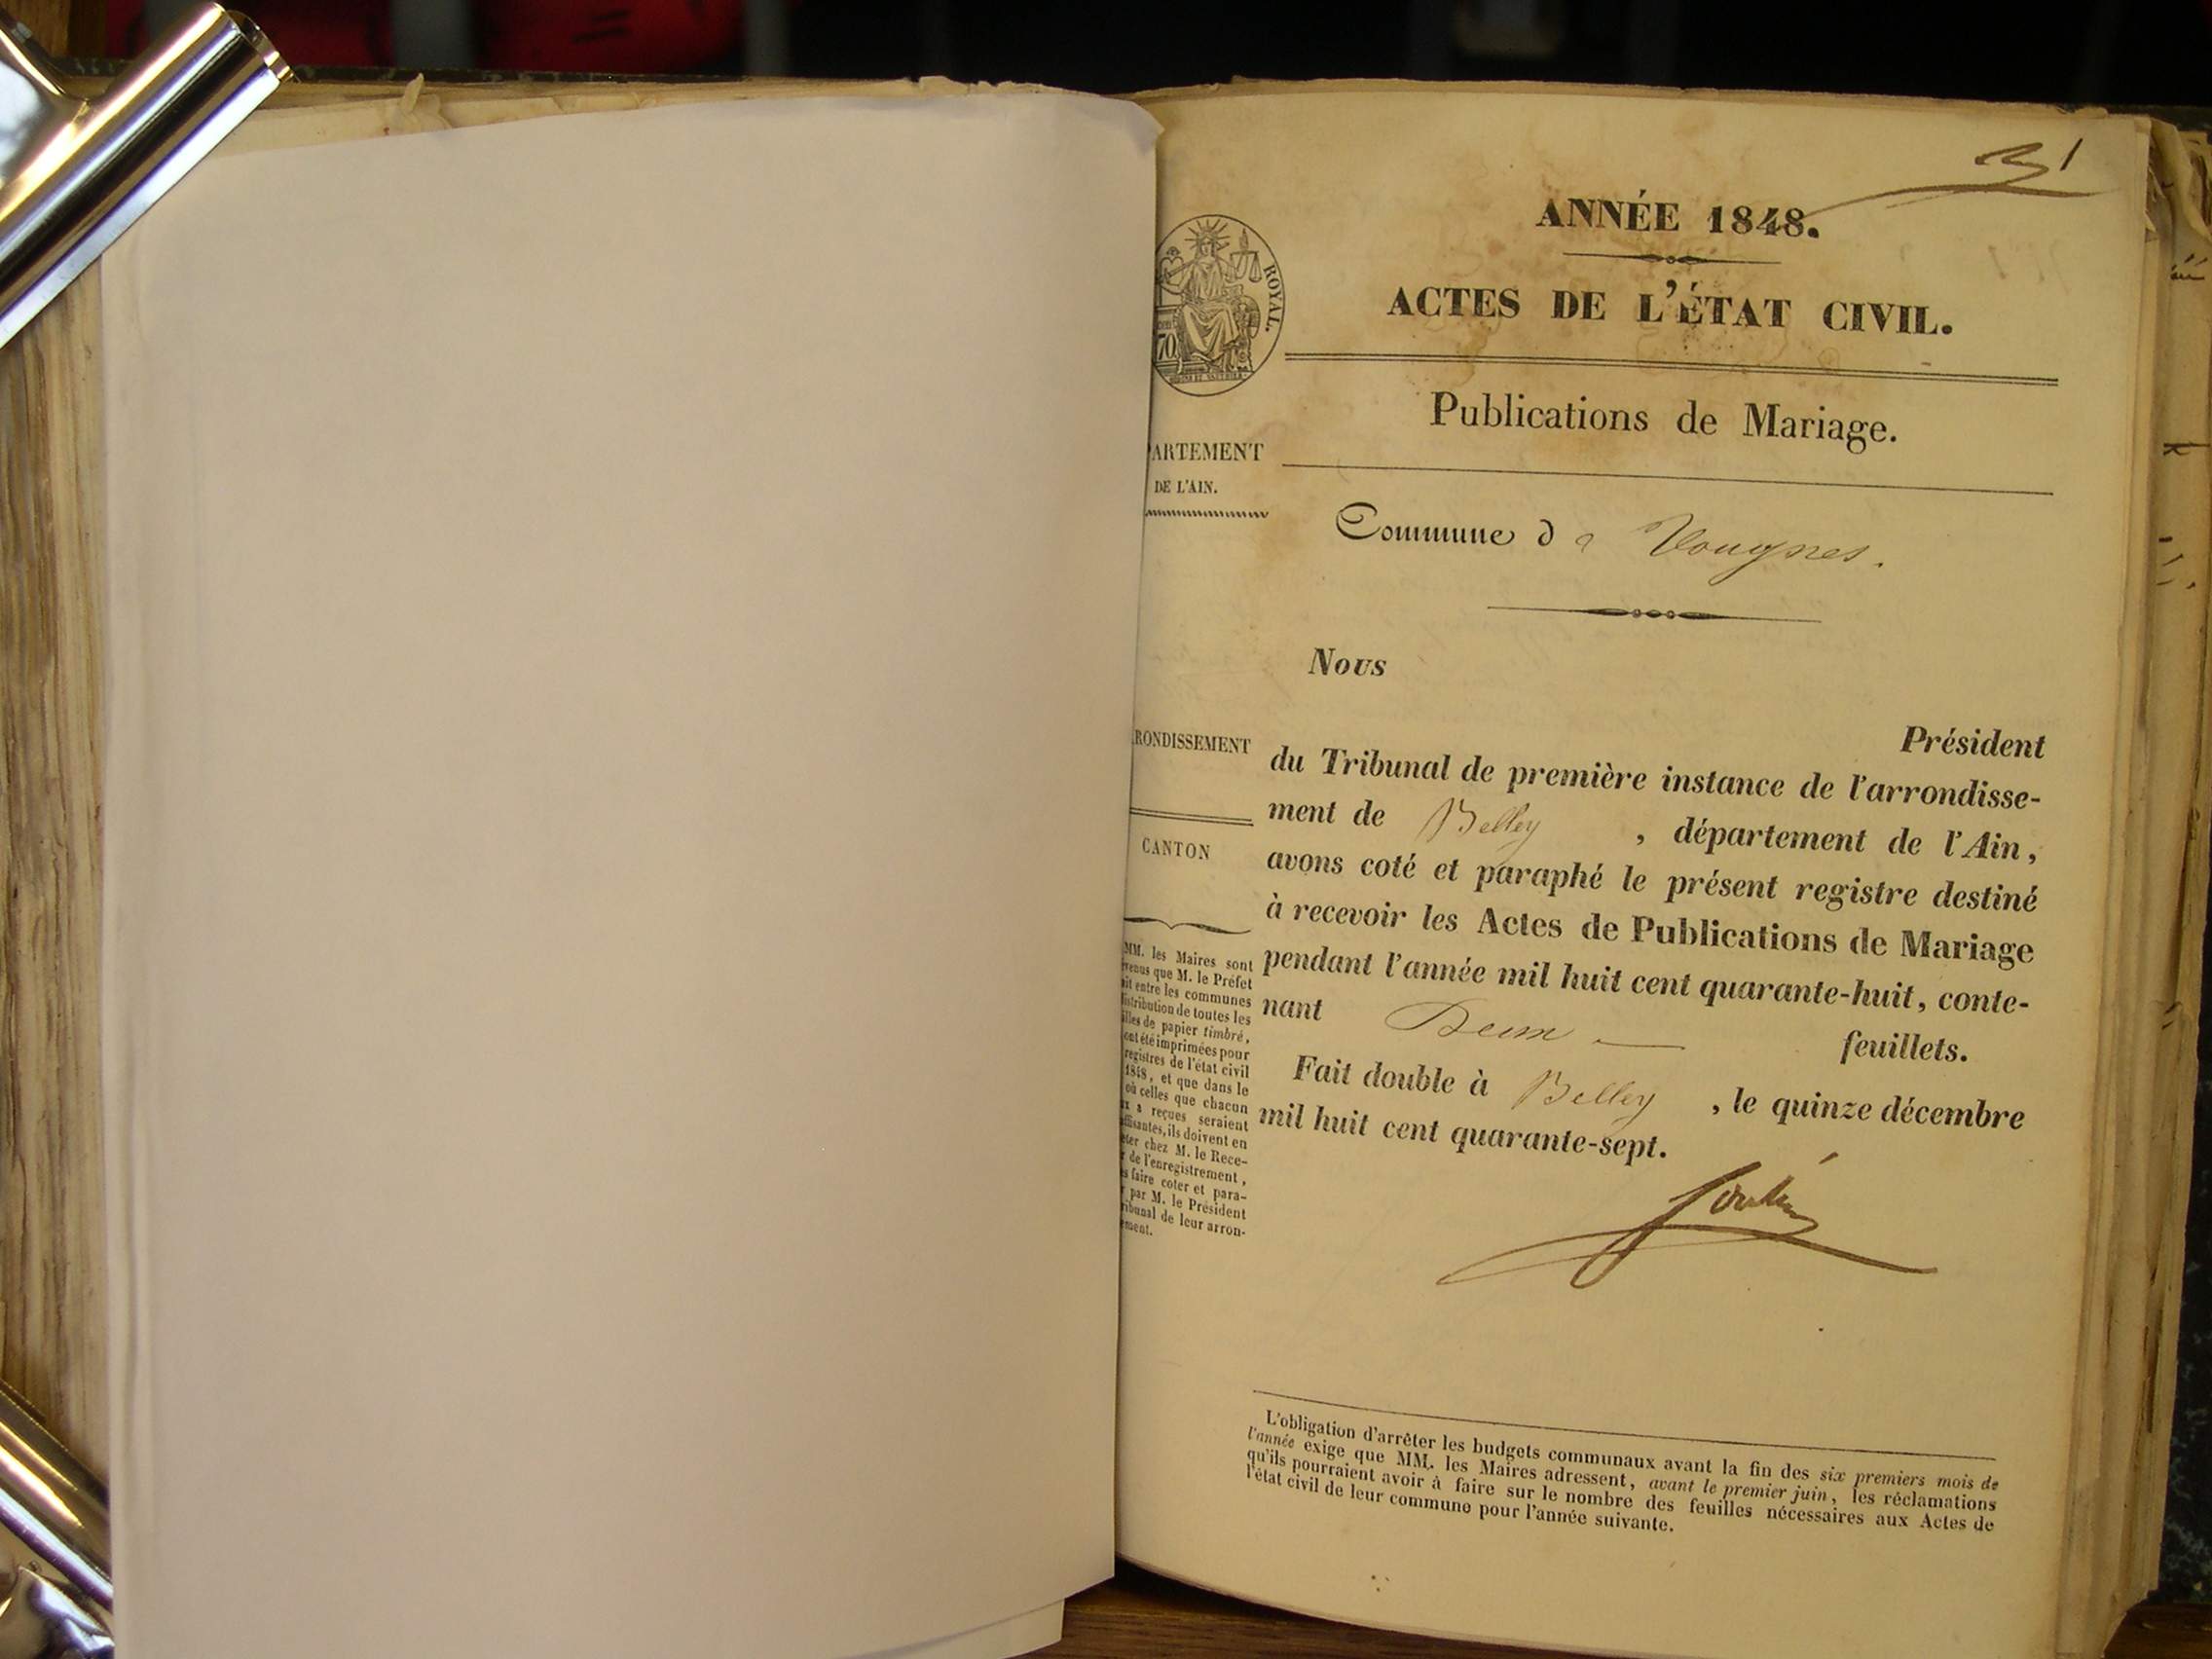 31
ANNÉE 1848.
ACTES DE L'ÉTAT CIVIL.
ROYAL.
70
Publications de Mariage.
PARTEMENT
DE L'AIN.
Commune d e Vougnes.
Nous
Président
RONDISSEMENT
du Tribunal de première instance de l'arrondisse-
ment de Belley , département de l'Ain,
CANTON
avons coté et paraphé le présent registre destiné
à recevoir les Actes de Publications de Mariage
pendant l'année mil huit cent quarante-huit, conte-
nant Deux feuillets.
Fait double à Belley , le quinze décembre
mil huit cent quarante-sept.
MM. les Maires sont
venus que M. le Préfet
ait entre les communes
distribution de toutes les
illes de papier timbré,
ont été imprimées pour
registres de l'état civil
1848, et que dans le
où celles que chacun
ux a reçues seraient
ffisantes, ils doivent en
eter chez M. le Rece-
r de l'enregistrement,
es faire coter et para-
r par M. le Président
ribunal de leur arron-
ement.
L'obligation d'arrêter les budgets communaux avant la fin des six premiers mois de
l'année exige que MM. les Maires adressent, avant le premier juin, les réclamations
qu'ils pourraient avoir à faire sur le nombre des feuilles nécessaires aux Actes de
l'état civil de leur commune pour l'année suivante.